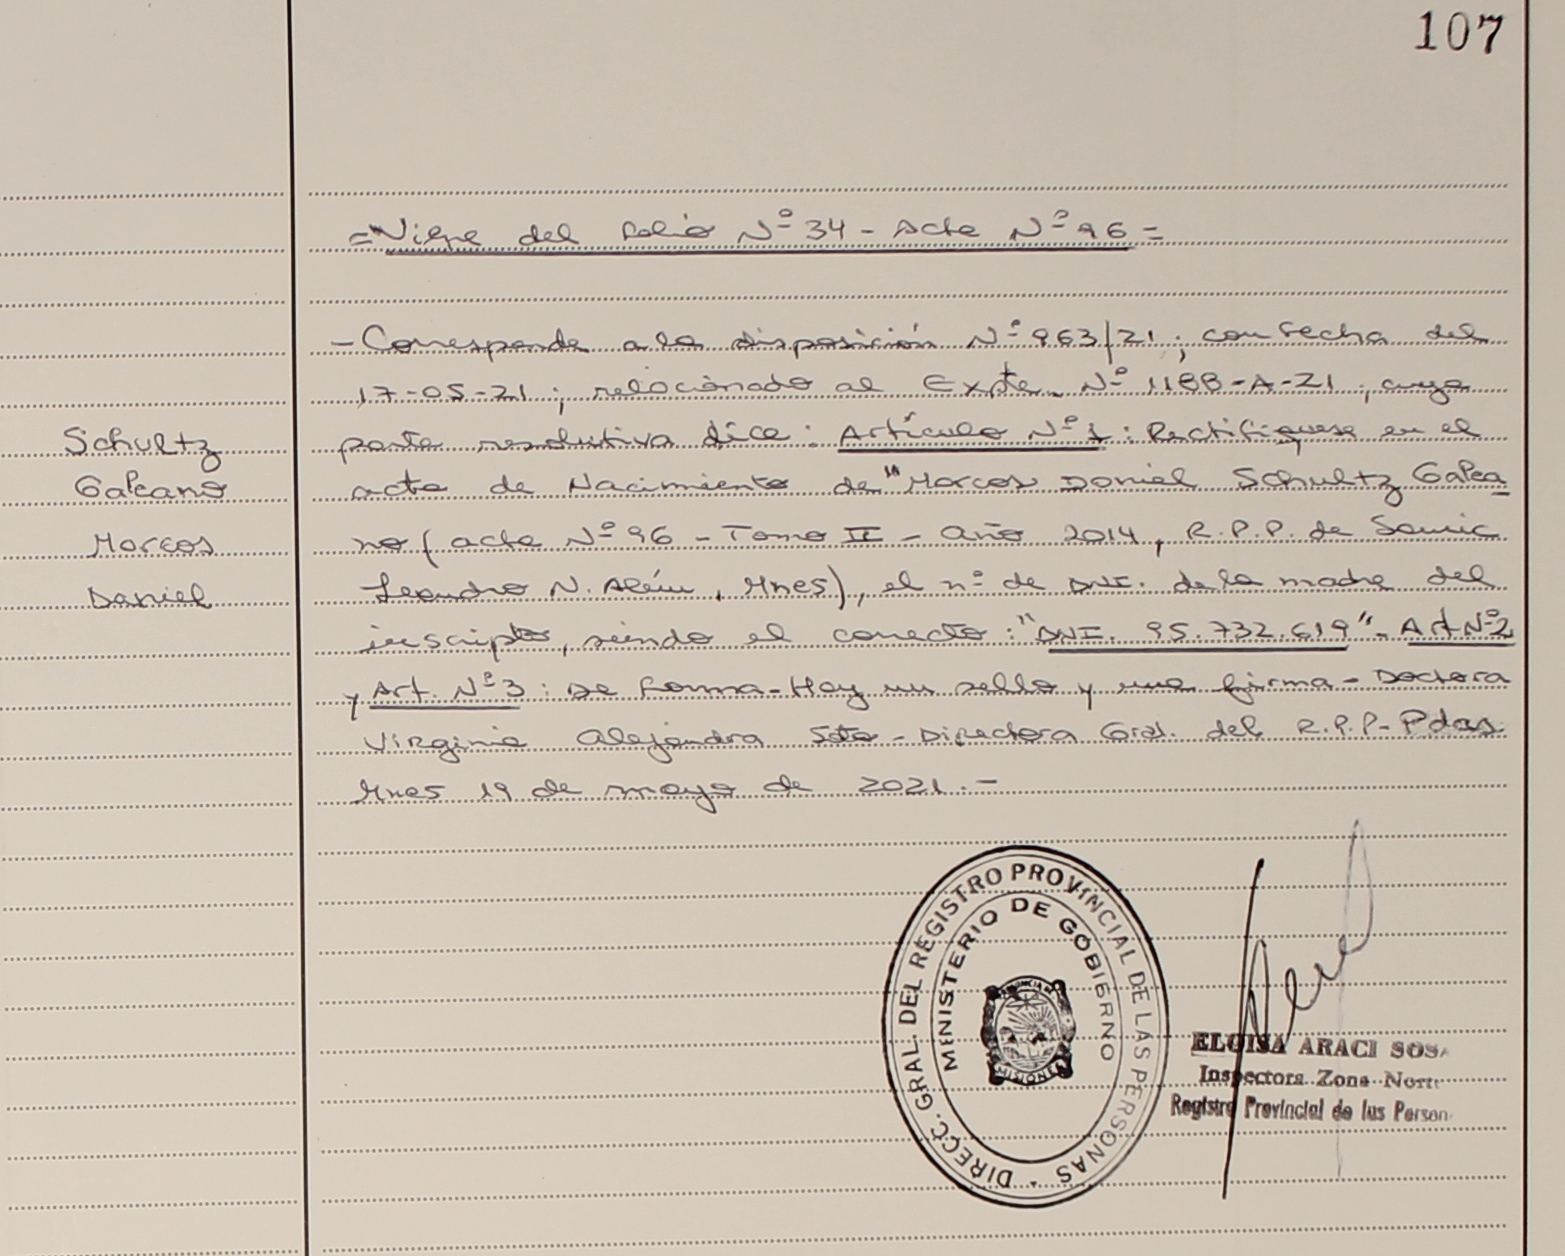 107
=Viene del folio Nº 34 - Acta Nº 96=
-Corresponde a la disposición Nº 963/21; con fecha del
17-05-21; relacionado al Expte. Nº 1188-A-21; cuya
parte resolutiva dice: Artículo Nº 1: Rectifíquese en el
acta de Nacimiento de "Marcos Daniel Schultz Galea
no (acta Nº 96 - Tomo II - Año 2014, R.P.P. de
Leandro N. Além, Mnes), el nº de DNI. de la madre del
inscripto, siendo el correcto: "DNI. 95.732.619". Art Nº2
y Art. Nº 3: De forma-Hay un sello y una firma - Doctora
Virginia Alejandra Soto - Directora Gral. del R.P.P- Pdas
Mnes 19 de mayo de 2021.-
Schultz
Galeano
Marcos
Daniel
DIRECC. GRAL. DEL REGISTRO PROVINCIAL DE LAS PERSONAS
MINISTERIO DE GOBIERNO
MISIONES
ELOISA ARACI SOSA
Inspectora Zona Norte
Registro Provincial de las Person